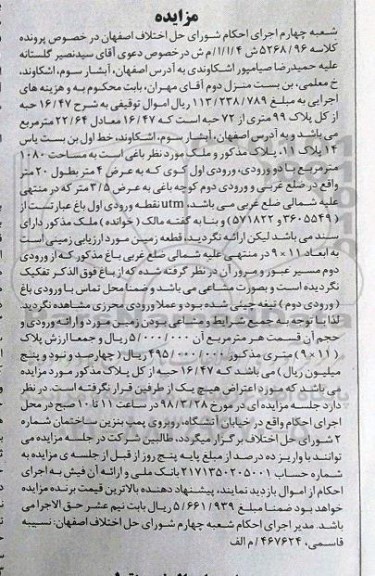 مزایده
شعبه چهارم اجرای احکام شورای حل اختلاف اصفهان در خصوص پرونده
کلاسه ۵۲۶۸/۹۶ ش ۴/۱/۱ م ش در خصوص دعوی آقای سیدنصیر گلستانه
علیه حمیدرضا صیامپور اشکاوندی به آدرس اصفهان، آبشار سوم، اشکاوند،
خ معلمی، بن بست منزل دوم آقای مهران، بابت محکوم به و هزینه های
اجرایی به مبلغ ۱۱۳/۲۳۸/۷۸۹ ریال اموال توقیفی به شرح ۱۶/۴۷ حبه
از کل پلاک ۹۹ متری از ۷۲ حبه است که ۱۶/۴۷ معادل ۲۲/۶۴ مترمربع
می باشد و به آدرس اصفهان، آبشار سوم، اشکاوند، خط اول بن بست یاس
۱۴ پلاک ۱۱، پلاک مذکور و ملک مورد نظر باغی است به مساحت ۱۰۸۰
مترمربع با دو ورودی، ورودی اول کوی که به عرض ۴ متر بطول ۲۰ متر
واقع در ضلع غربی و ورودی دوم کوچه باغی به عرض ۳/۵ متر که در منتهی
علیه شمالی ضلع غربی می باشد، utm نقطه ورودی اول باغ عبارتست از
(۳۶۰۵۵۴۹ و ۵۷۱۸۲۲) و بنا به گفته مالک (خوانده) ملک مذکور دارای
سند می باشد لیکن ارائه نگردید، قطعه زمین مورد ارزیابی زمینی است
به ابعاد ۱۱×۹ در منتهی علیه شمالی ضلع غربی باغ مذکور که از ورودی
دوم مسیر عبور و مرور آن در نظر گرفته شده که از باغ فوق الذکر تفکیک
نگردیده است و بصورت مشاعی می باشد و ضمنا محل تماس با ورودی باغ
(ورودی دوم) تیغه چینی شده بود و عملا ورودی محرزی مشاهده نگردید
لذا با توجه به جمیع شرایط و مشاعی بودن زمین مورد و ارائه ورودی و
حجم آن قسمت هر مترمربع آن ۵/۰۰۰/۰۰۰ ریال و جمعا ارزش پلاک
(۱۱×۹) متری مذکور ۴۹۵/۰۰۰/۰۰۰ ریال (چهارصد و نود و پنج
میلیون ریال) می باشد که ۱۶/۴۷ حبه از کل پلاک مذکور مورد مزایده
می باشد که مورد اعتراض هیچ یک از طرفین قرار نگرفته است. در نظر
دارد جلسه مزایده ای در مورخ ۹۸/۳/۲۸ در ساعت ۱۱ تا ۱۰ صبح در محل
اجرای احکام واقع در خیابان آتشگاه، روبروی پمپ بنزین ساختمان شماره
۲ شورای حل اختلاف برگزار میگردد، طالبین شرکت در جلسه مزایده می
توانند با واریز ده درصد از مبلغ پایه پنج روز از قبل از جلسه ی مزایده به
شماره حساب ۲۱۷۱۳۵۰۲۰۵۰۰۱ بانک ملی و ارائه آن فیش به اجرای
احکام از اموال بازدید نمایند، پیشنهاد دهنده بالاترین قیمت برنده مزایده
خواهد بود ضمنا مبلغ ۵/۶۶۱/۹۳۹ ریال بابت نیم عشر حق الاجرا می
باشد. مدیر اجرای احکام شعبه چهارم شورای حل اختلاف اصفهان: نسیبه
قاسمی، ۴۶۷۶۲۴/م الف